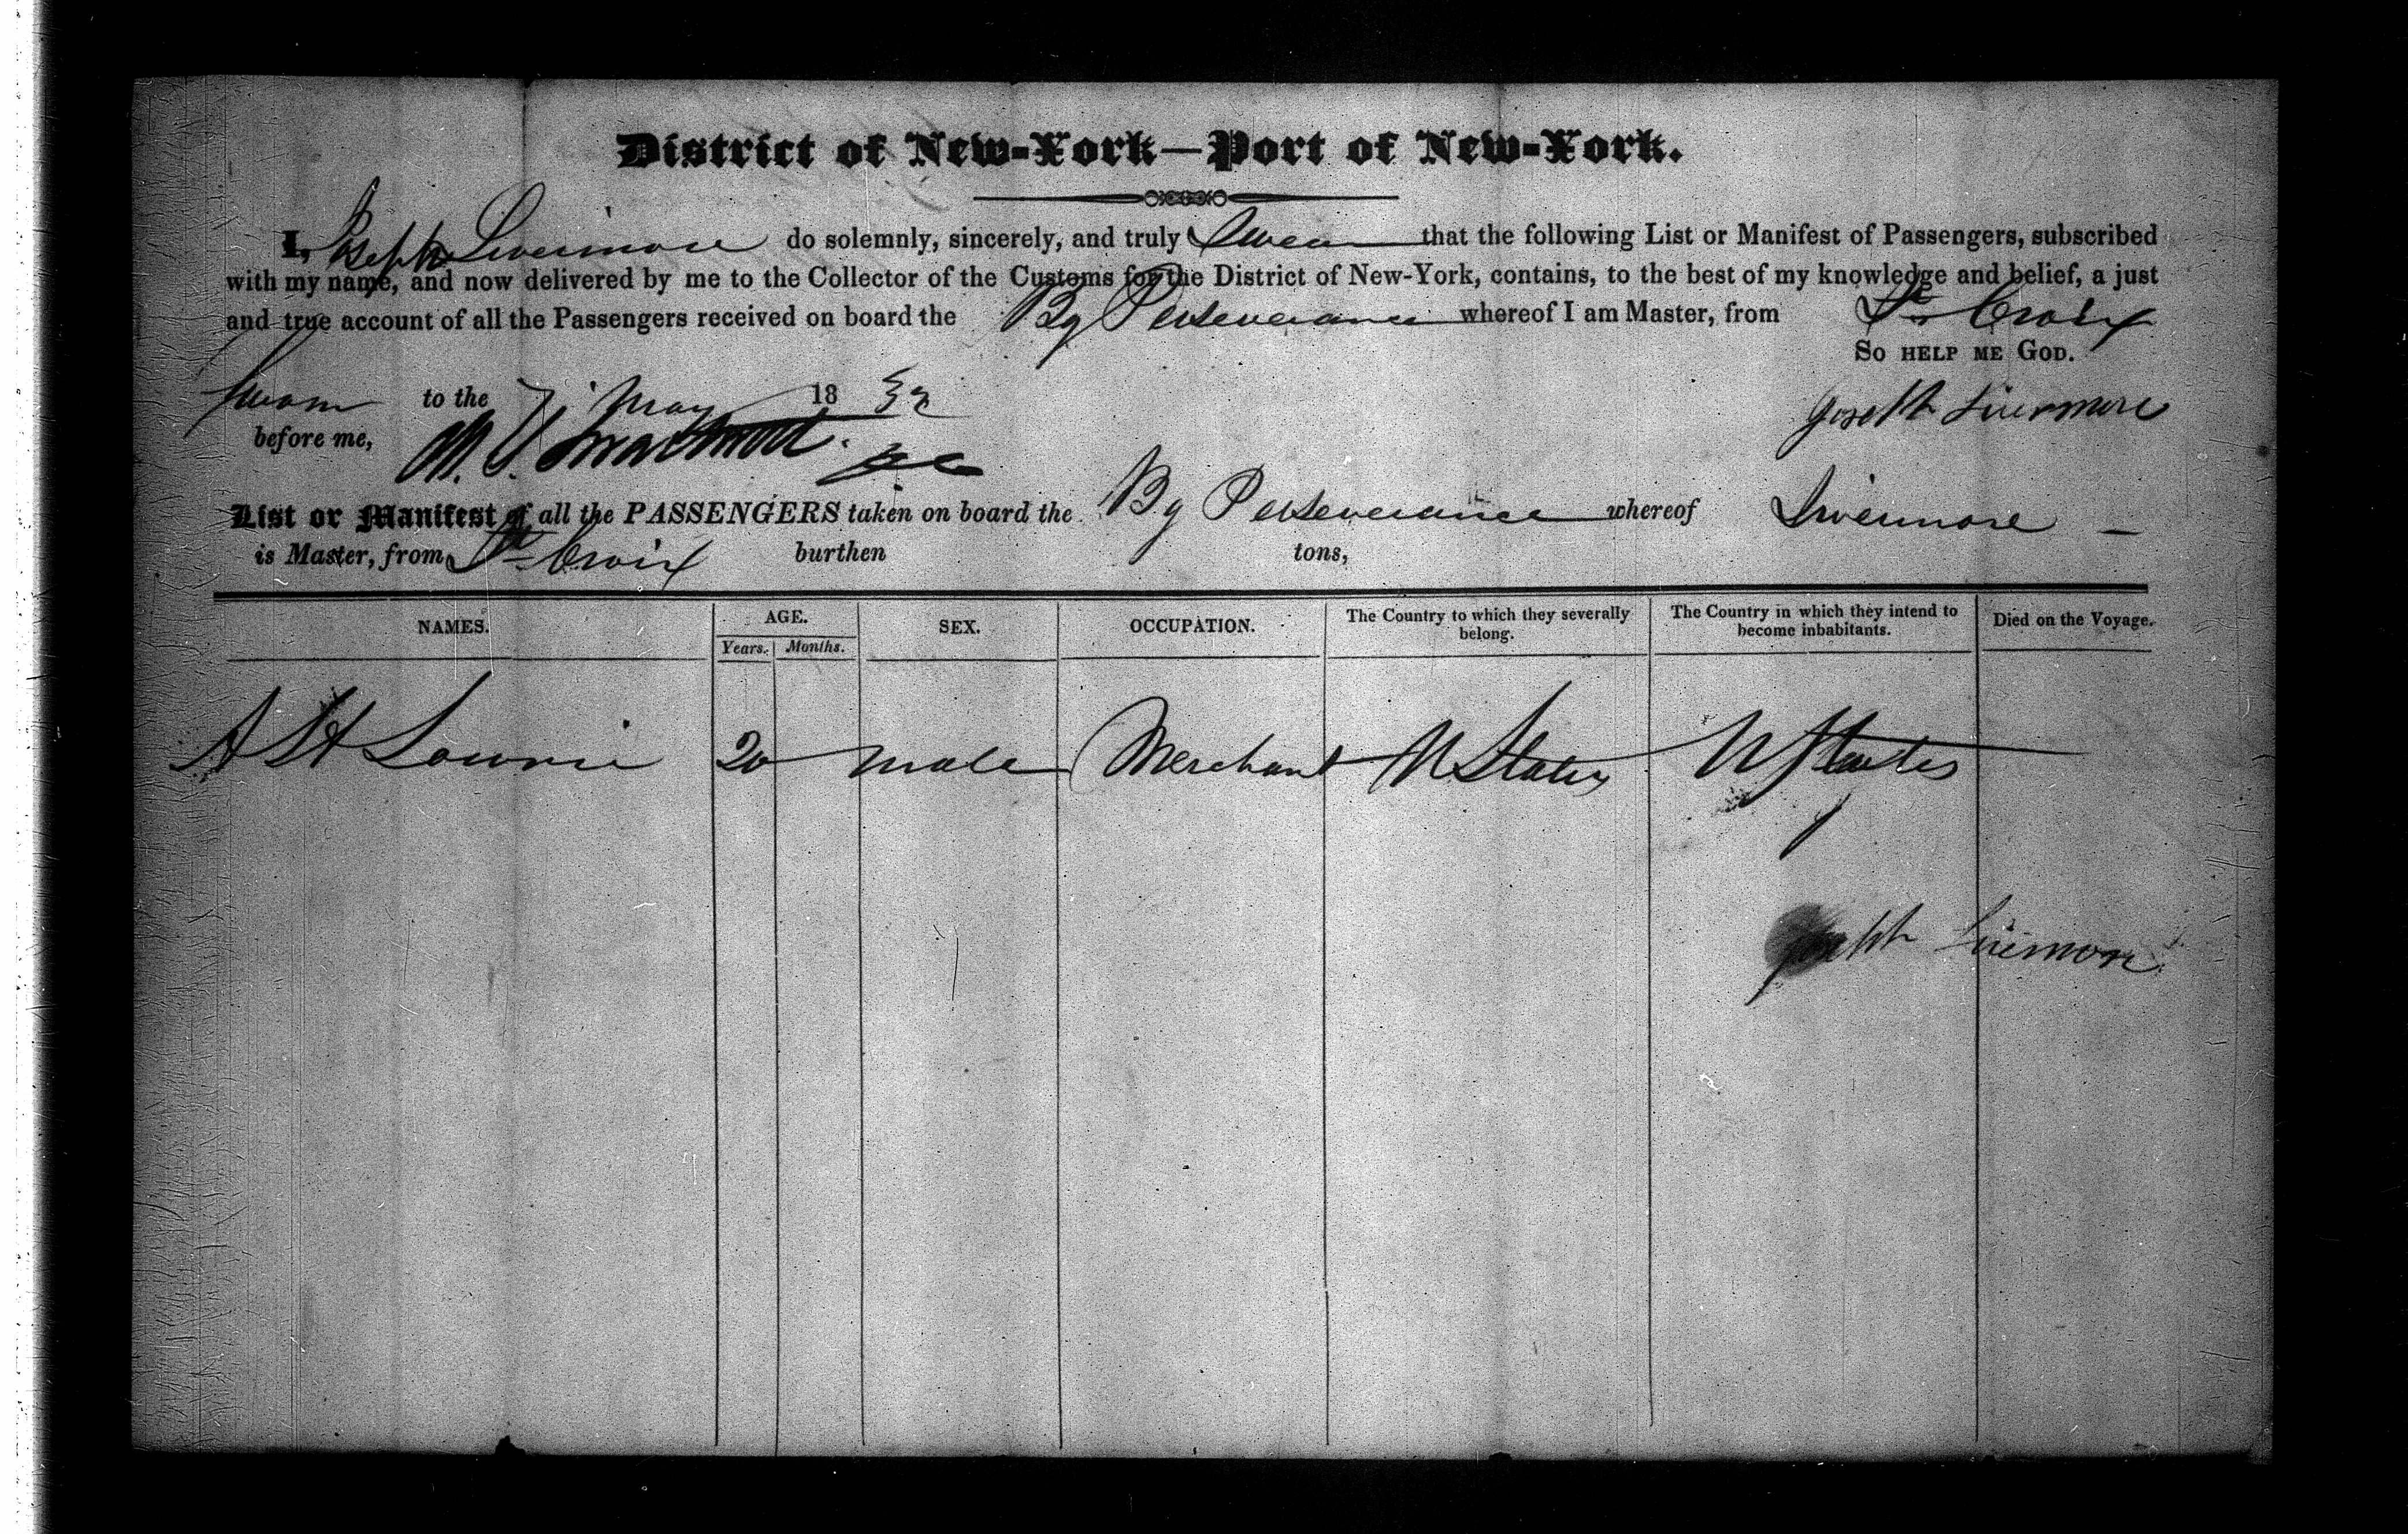 District of New-York—Port of New-York.
I, Joseph Livermore do solemnly, sincerely, and truly Swear that the following List or Manifest of Passengers, subscribed
with my name, and now delivered by me to the Collector of the Customs for the District of New-York, contains, to the best of my knowledge and belief, a just
and true account of all the Passengers received on board the Bg Perseverance whereof I am Master, from St Croix
So help me God.
Sworn to the 7 May 1832
Joseph Livermore
before me,
List or Manifest of all the PASSENGERS taken on board the Bg Perseverance whereof Livermore
is Master, from St Croix burthen tons,
NAMES. AGE. SEX. OCCUPATION. The Country to which they severally belong. The Country in which they intend to become inhabitants. Died on the Voyage.
Years. Months.
A St Lowrie 20 male Merchant U States U States
Joseph Livermore